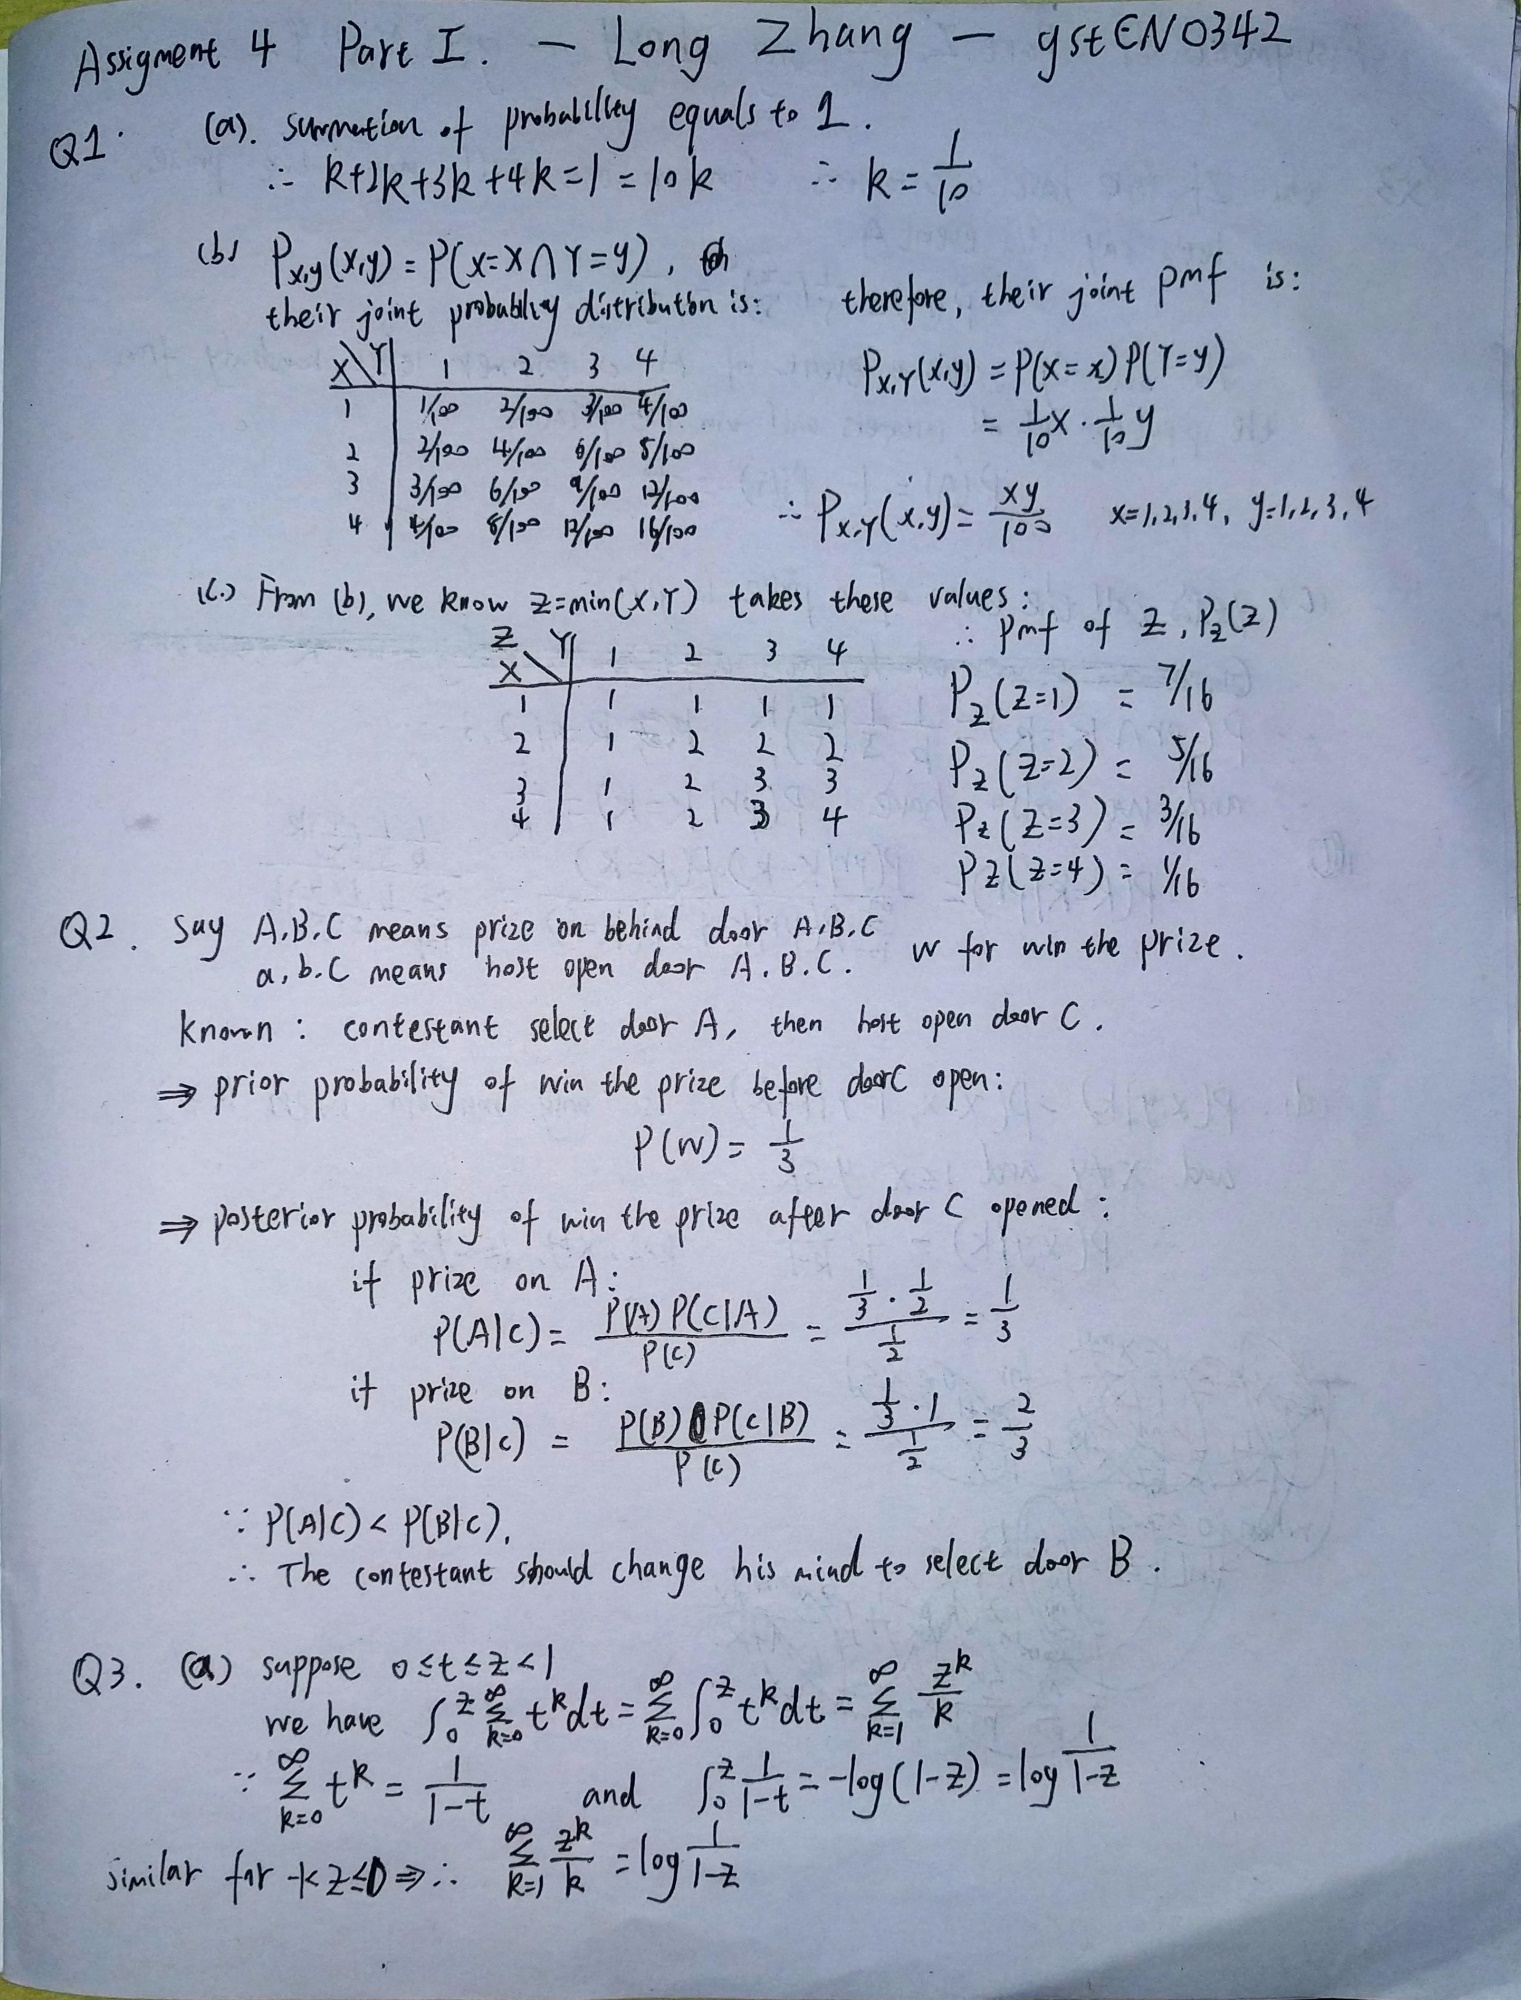 Assigment 4 Part I. — Long Zhang — gstEN0342
Q1. (a). summation of probability equals to 1.
∴ k+2k+3k+4k=1=10k ∴ k = 1/10
(b) P_{x,y}(x,y) = P(X=x ∩ Y=y),
their joint probability distribution is:
X\Y 1 2 3 4
1 1/100 2/100 3/100 4/100
2 2/100 4/100 6/100 8/100
3 3/100 6/100 9/100 12/100
4 4/100 8/100 12/100 16/100
therefore, their joint pmf is:
P_{X,Y}(x,y) = P(X=x) P(Y=y)
= 1/10 x · 1/10 y
∴ P_{X,Y}(x,y) = xy/100 x=1,2,3,4, y=1,2,3,4
(c) From (b), we know Z=min(X,Y) takes these values:
Z X\Y 1 2 3 4
1 1 1 1 1
2 1 2 2 2
3 1 2 3 3
4 1 2 3 4
∴ pmf of Z, P_z(Z)
P_z(Z=1) = 7/16
P_z(Z=2) = 5/16
P_z(Z=3) = 3/16
P_z(Z=4) = 1/16
Q2. say A,B,C means prize on behind door A,B,C
a,b,c means host open door A,B,C. W for win the prize.
Known: contestant select door A, then host open door C.
⇒ prior probability of win the prize before door C open:
P(W) = 1/3
⇒ posterior probability of win the prize after door C opened:
if prize on A:
P(A|c) = P(A) P(c|A) / P(c) = (1/3 · 1/2) / (1/2) = 1/3
if prize on B:
P(B|c) = P(B) P(c|B) / P(c) = (1/3 · 1) / (1/2) = 2/3
∵ P(A|c) < P(B|c),
∴ The contestant should change his mind to select door B.
Q3. (a) suppose 0≤t≤z<1
we have ∫_0^z Σ_{k=0}^∞ t^k dt = Σ_{k=0}^∞ ∫_0^z t^k dt = Σ_{k=1}^∞ z^k/k
∵ Σ_{k=0}^∞ t^k = 1/(1-t) and ∫_0^z 1/(1-t) = -log(1-z) = log 1/(1-z)
similar for -1<z≤0 ⇒ ∴ Σ_{k=1}^∞ z^k/k = log 1/(1-z)